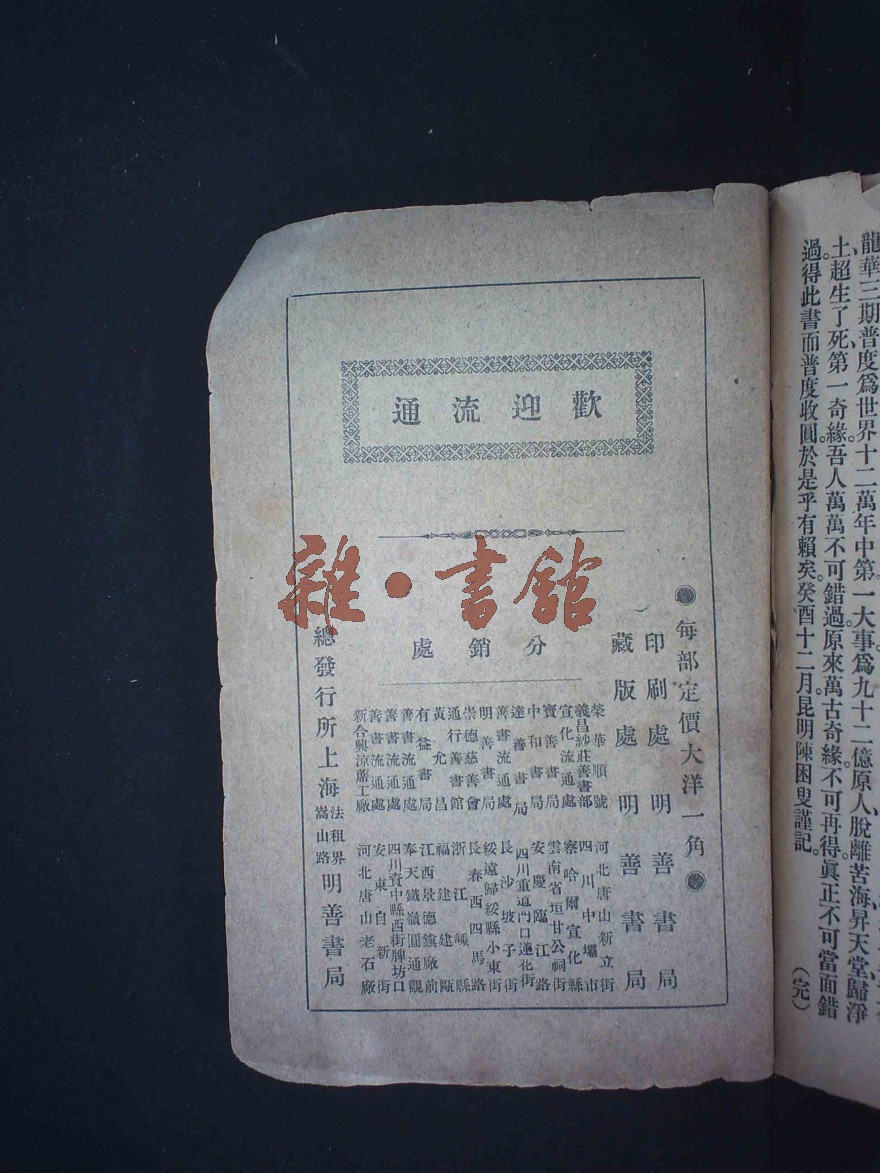 龍華三期普度爲世界十二萬年中第一大事爲九十二億原人脫離苦海昇天堂歸淨
土超生了死第一奇緣吾人萬萬不可錯過原來萬古奇緣不可再得眞正不可當面錯
過得此書而普度收圓於是乎有賴矣癸酉十二月昆明陳困叟謹記
(完)
歡迎流通
每部定價大洋一角
印刷處 明善書局
藏版處 明善書局
分銷處
榮華順號 河北唐山新立街
義昌紗莊善書部 四川中壩市
宣化流通處 察哈爾宣化縣
寶善書局 雲南省垣甘公祠街
中和書局 安慶臨江路
達善書局 四川重道門口蓮化街
善書流通處 長沙坡子街
明善書局 綏遠歸綏縣小東街
崇德慈善會 長春西四馬路
通行善書館 浙江嵊縣
黃允昌 福建建甌
有益書局 江西景德鎮廠前
善書流通處 奉天鐵嶺圓通觀
善書流通處 四川資中縣西街牌坊口
善書流通處 安東自新街
新合興涼蓆工廠 河北唐山老石廠
總發行所上海法租界嵩山路明善書局
雜·書館